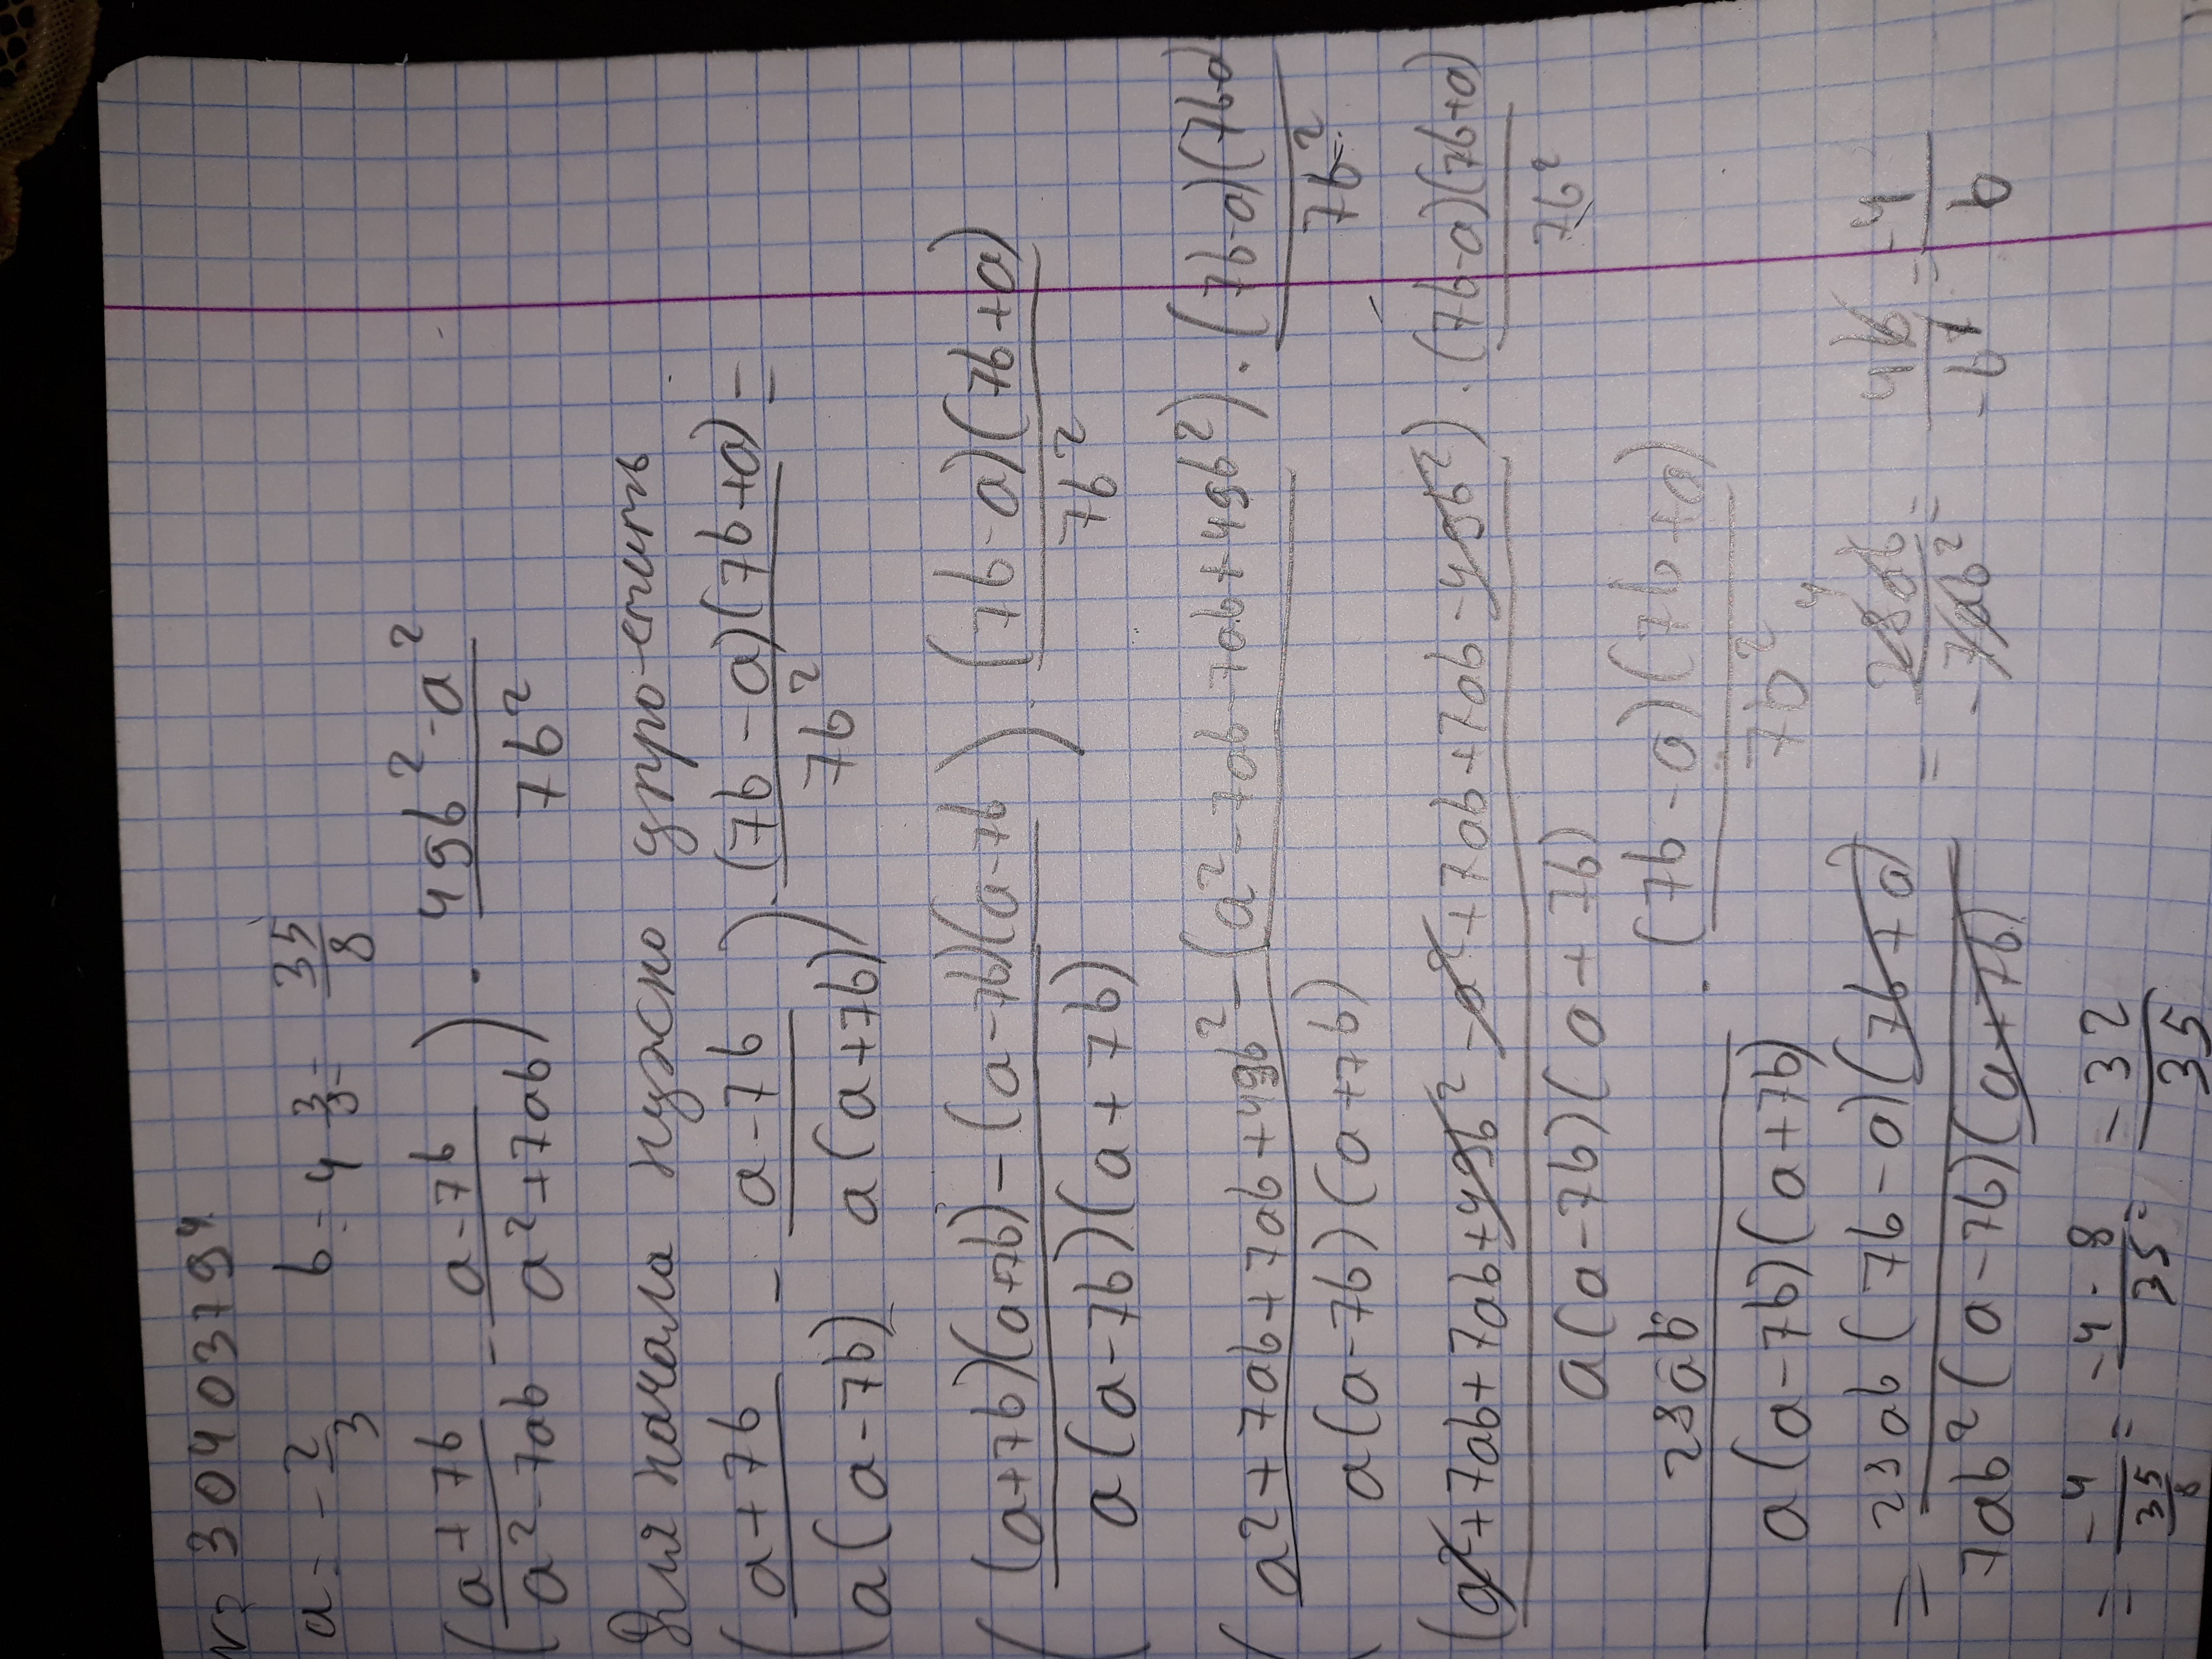 № 3040379 4.
a = -2/3 b = 4 3/8 = 35/8
((a+7b)/(a²-7ab) - (a-7b)/(a²+7ab)) · (49b²-a²)/(7b²)
Для начала нужно упро-стить
((a+7b)/(a(a-7b)) - (a-7b)/(a(a+7b))) · ((7b-a)(7b+a))/(7b²) =
(((a+7b)(a+7b) - (a-7b)(a-7b))/(a(a-7b)(a+7b))) · ((7b-a)(7b+a))/(7b²)
(a²+7ab+7ab+49b² - (a²-7ab-7ab+49b²))/(a(a-7b)(a+7b)) · ((7b-a)(7b+a))/(7b²)
(a²+7ab+7ab+49b²-a²+7ab+7ab-49b²)/(a(a-7b)(a+7b)) · ((7b-a)(7b+a))/(7b²)
28ab/(a(a-7b)(a+7b)) · ((7b-a)(7b+a))/(7b²)
= (28ab(7b-a)(7b+a))/(7ab²(a-7b)(a+7b)) = 28ab/(-7ab²) = 4b/(-b²) = -4/b
= -4/(35/8) = (-4·8)/35 = -32/35